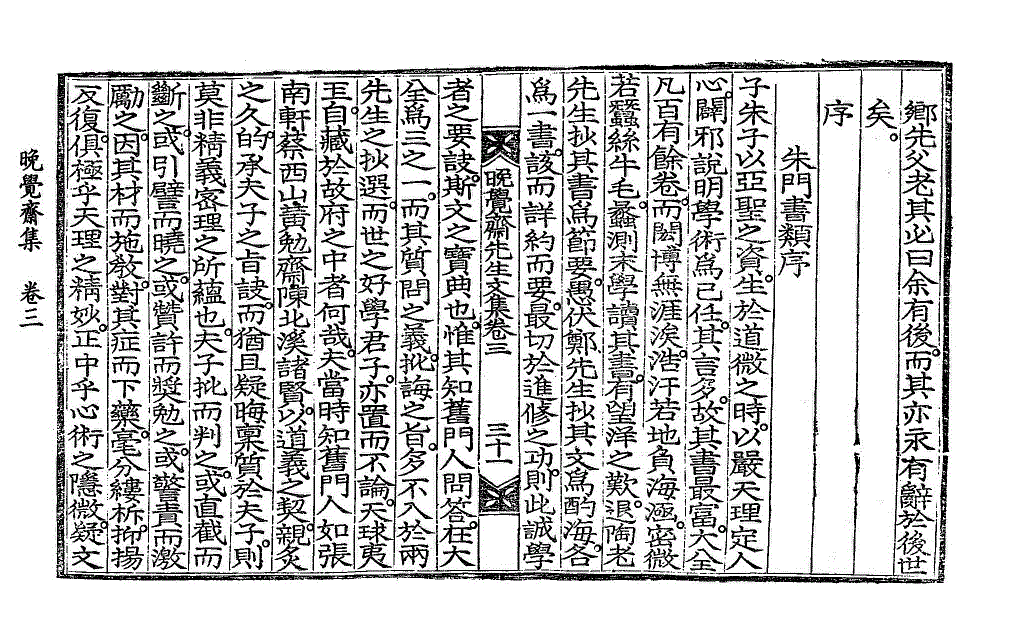 鄉先父老其必曰余有後。而其亦永有辭於後世
矣。
序
朱門書類序
子朱子以亞聖之資。生於道微之時。以嚴天理定人
心。闢邪說明學術爲己任。其言多。故其書最富。大全
凡百有餘卷。而閎博無涯涘。浩汗若地負海涵。密微
若蠶絲牛毛。蠡測末學讀其書。有望洋之歎。退陶老
先生抄其書爲節要。愚伏鄭先生抄其文爲酌海。各
爲一書。該而詳約而要。最切於進修之功。則此誠學
晩覺齋先生文集卷三 三十一
者之要訣。斯文之寶典也。惟其知舊門人問答。在大
全爲三之一。而其質問之義。批誨之旨。多不入於兩
先生之抄選。而世之好學君子。亦置而不論。天球夷
玉。自藏於故府之中者何哉。夫當時知舊門人如張
南軒蔡西山黃勉齋陳北溪諸賢。以道義之契。親炙
之久。的承夫子之旨訣。而猶且疑晦稟質於夫子。則
莫非精義密理之所蘊也。夫子批而判之。或直截而
斷之。或引譬而曉之。或贊許而奬勉之。或警責而激
勵之。因其材而施敎。對其症而下藥。毫分縷析。抑揚
反復。俱極乎天理之精妙。正中乎心術之隱微。疑文
晩覺齋集 卷三